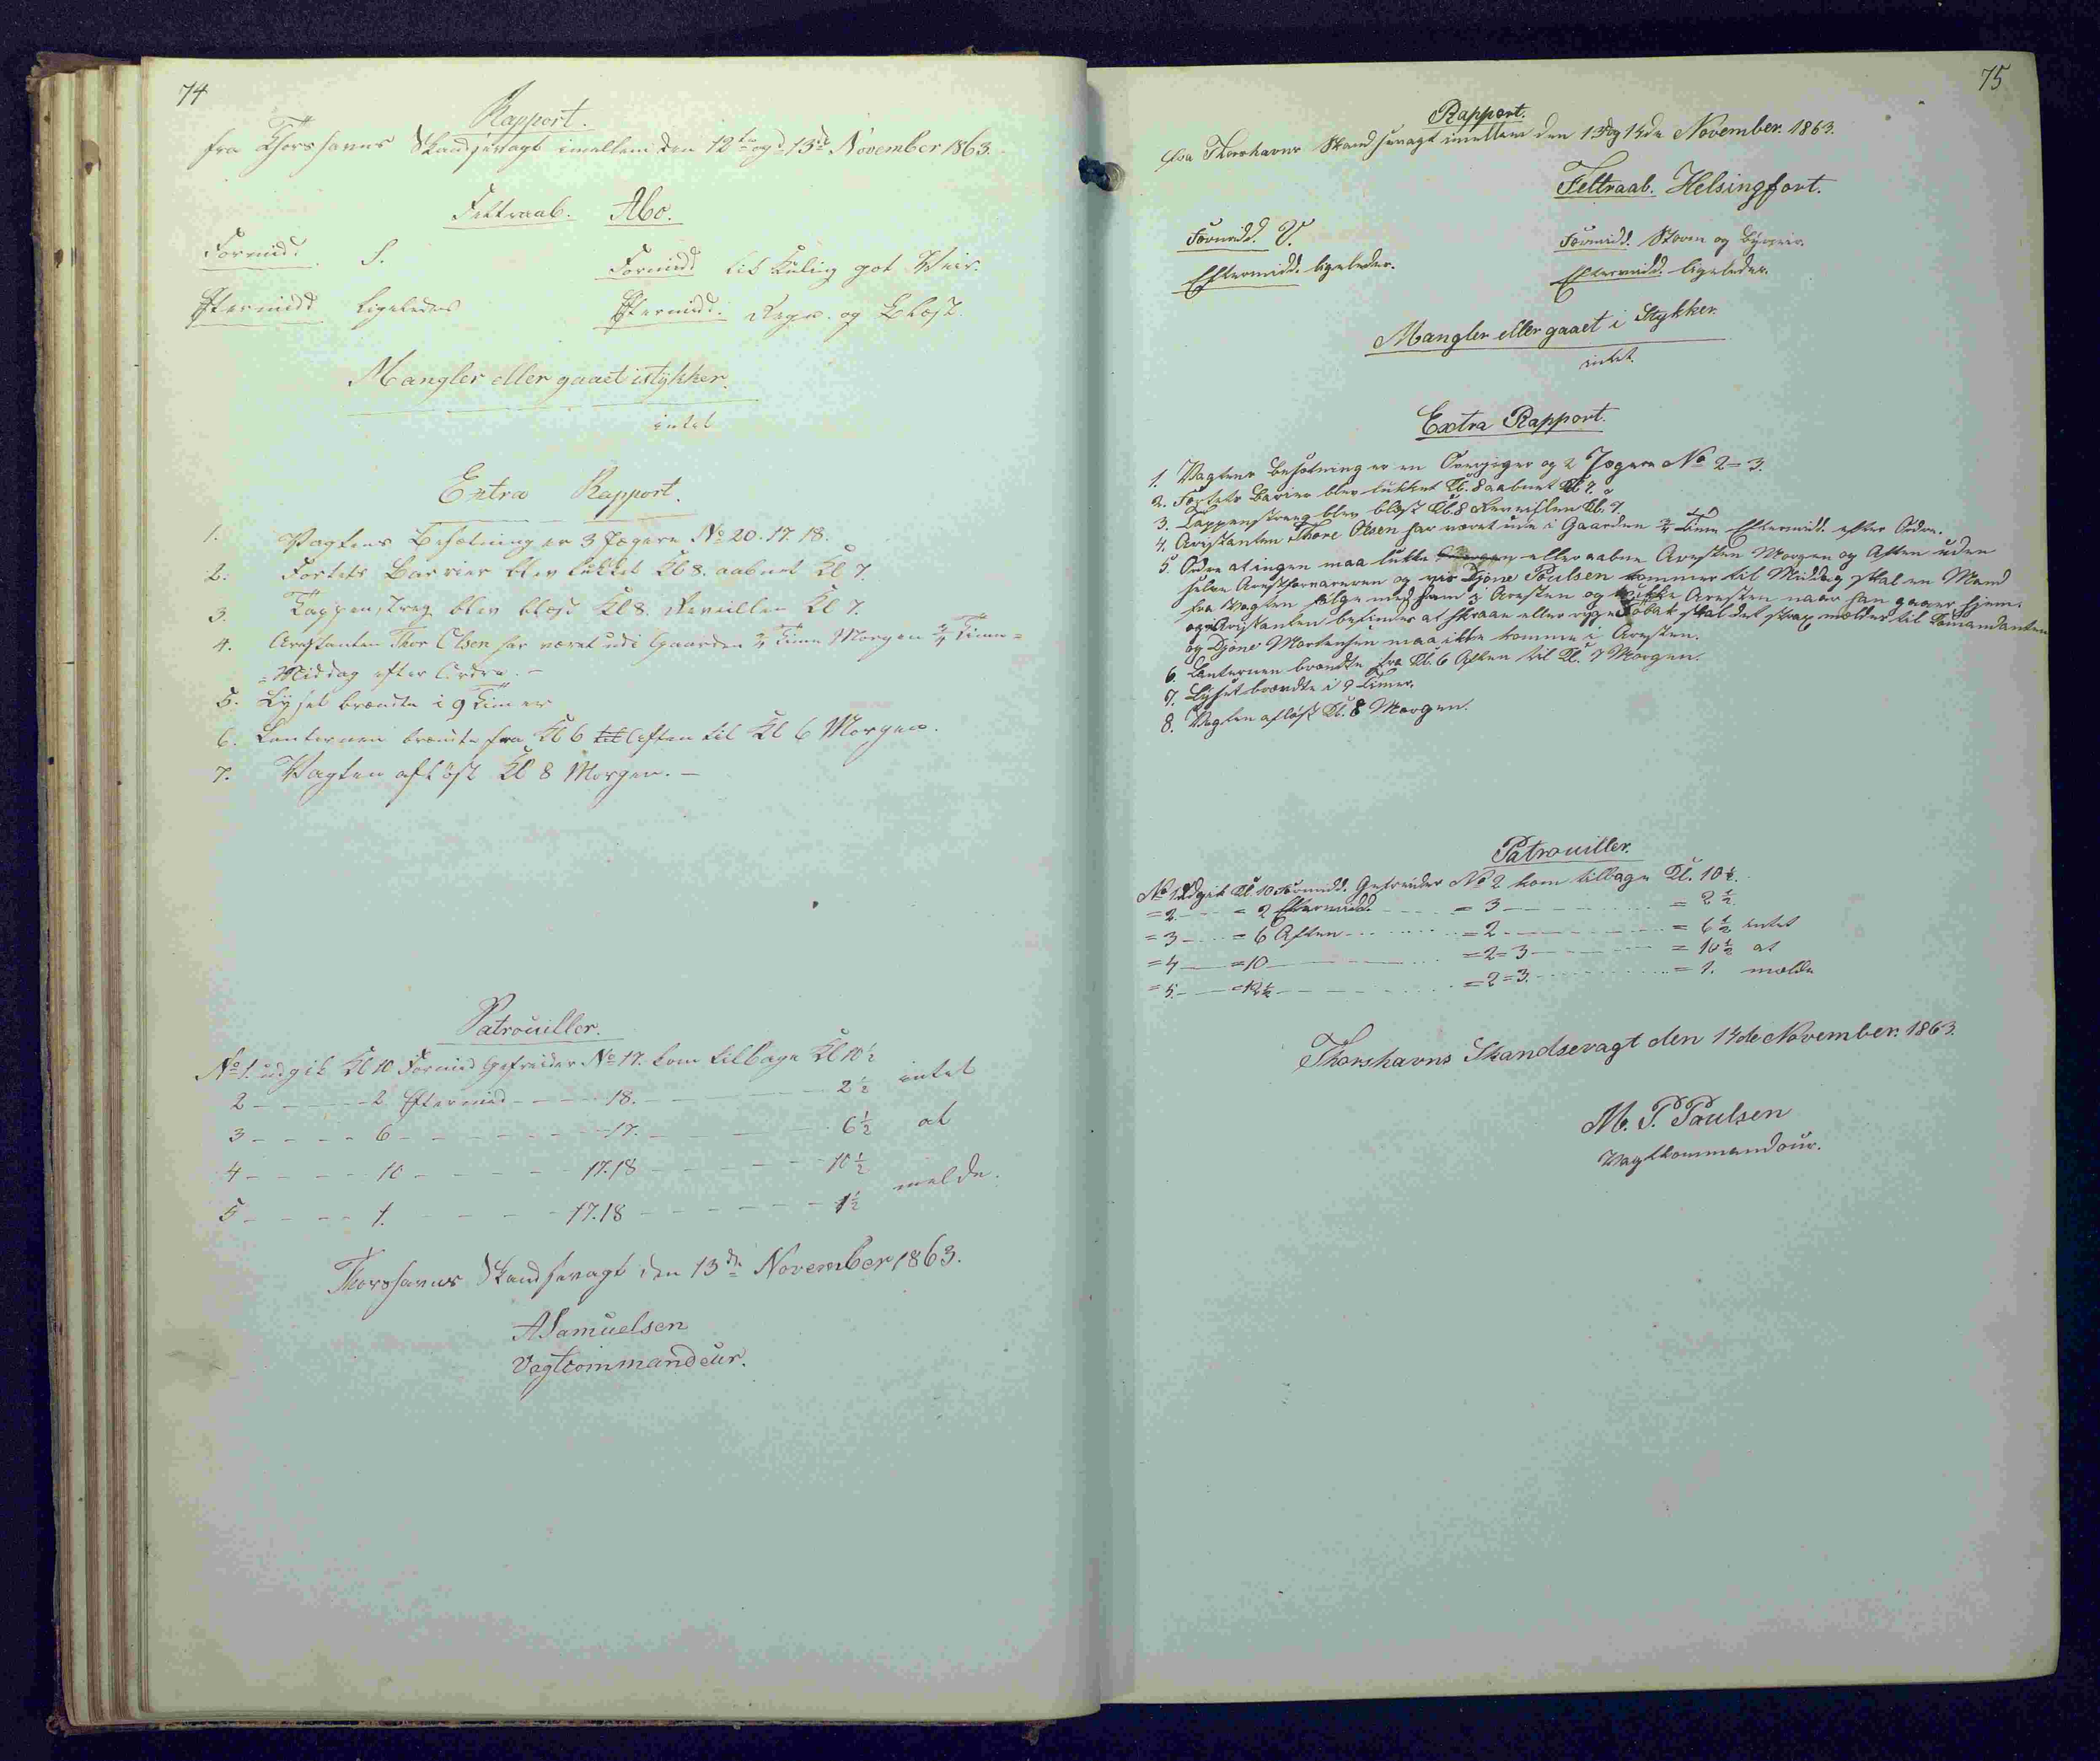 74
Rapport.
fra Thorshavns Skandsevagt imellem den 12te og 13de November 1863.
Feltraab. Abo.
Formidd. S. Formidd lit Kuling got Veir.
Eftermidd ligeledes Eftermidd. Regn og Blæst.
Mangler eller gaaet istykker.
intet
Extra Rapport.
1. Vagtens Besætning er 3 Jægere No 20. 17. 18.
2. Fortets Barrier blev lukket Kl 8. aabnet Kl 7.
3. Tappenstreg blev blæst Kl 8. Reveillen Kl 7.
4. Arestanten Thor Olsen har været udi Gaarden ¾ Time Morgen ¾ Time =
= Middag efter Ordre. –
5. Lyset brændte i 9 Timer
6. Lanternen brændte fra Kl 6 til Aften til Kl 6 Morgen.
7. Vagten afløst Kl 8 Morgen. –
Patrouiller.
No 1. udgik Kl 10 Formid Gefreider No 17. kom tilbage Kl 10½
2 – – – 2 Eftermid – – – 18. – – – 2½ intet
3 – – – 6 – – – 17. – – – 6½ at
4 – – – 10 – – – 17.18 – – – 10½
5 – – – 1. – – – 17.18 – – – 1½ melde.
Thorshavns Skandsevagt den 13de November 1863.
A Samuelsen
Vagtcommandeur.
75
Rapport.
fra Thorshavns Skandsevagt imellem den 13 og 14de November 1863.
Feltraab. Helsingfort.
Formidd. V. Formidd. Storm og
Eftermidd. ligeledes. Eftermidd. ligeledes.
Mangler eller gaaet i Stykker.
intet.
Extra Rapport.
1. Vagtens Besætning er en Overjæger og 2 Jægere No 2 = 3.
2. Fortets Barier blev lukket Kl. 8 aabnet Kl 7.
3. Tappenstreg blev blæst Kl. 8 Reveillen Kl. 7.
4. Aristanten Thore Olsen har været ude i Gaarden ¾ Time Eftermidd. efter Ordre.
5. Ordre at ingen maa lukke eller aabne Aresten Morgen og Aften uden
selve Arestforvareren og vis Djone Poulsen kommer til Middag skal en Mand
fra Vagten følge med ham i Aresten og lukke Aresten naar han gaaer hjem.
og Aristanten befindes at skraae eller ryge Tobak skal det strax meldes til Comandanten
og Djone Mortensen maa ikke komme i Aresten.
6. Lanternen brændte fra Kl. 6 Aften til Kl. 7 Morgen.
7. Lyset brændte i 9 Timer.
8. Vagten afløst Kl. 8 Morgen.
Patrouiller.
No 1 Udgik Kl. 10 Formidd. Gefreider No 2 kom tilbage Kl. 10½.
= 2 – – = 2 Eftermidd. – – = 3 – – = 2½.
= 3 – – = 6 Aften – – = 2 – – = 6½ intet
= 4 – – = 10 – – = 2 = 3 – – = 10½ at
= 5. – – = 12½ – – = 2 = 3. – – = 1. melde
Thorshavns Skandsevagt den 14de November. 1863.
M. P. Poulsen
Vagtkommandour.